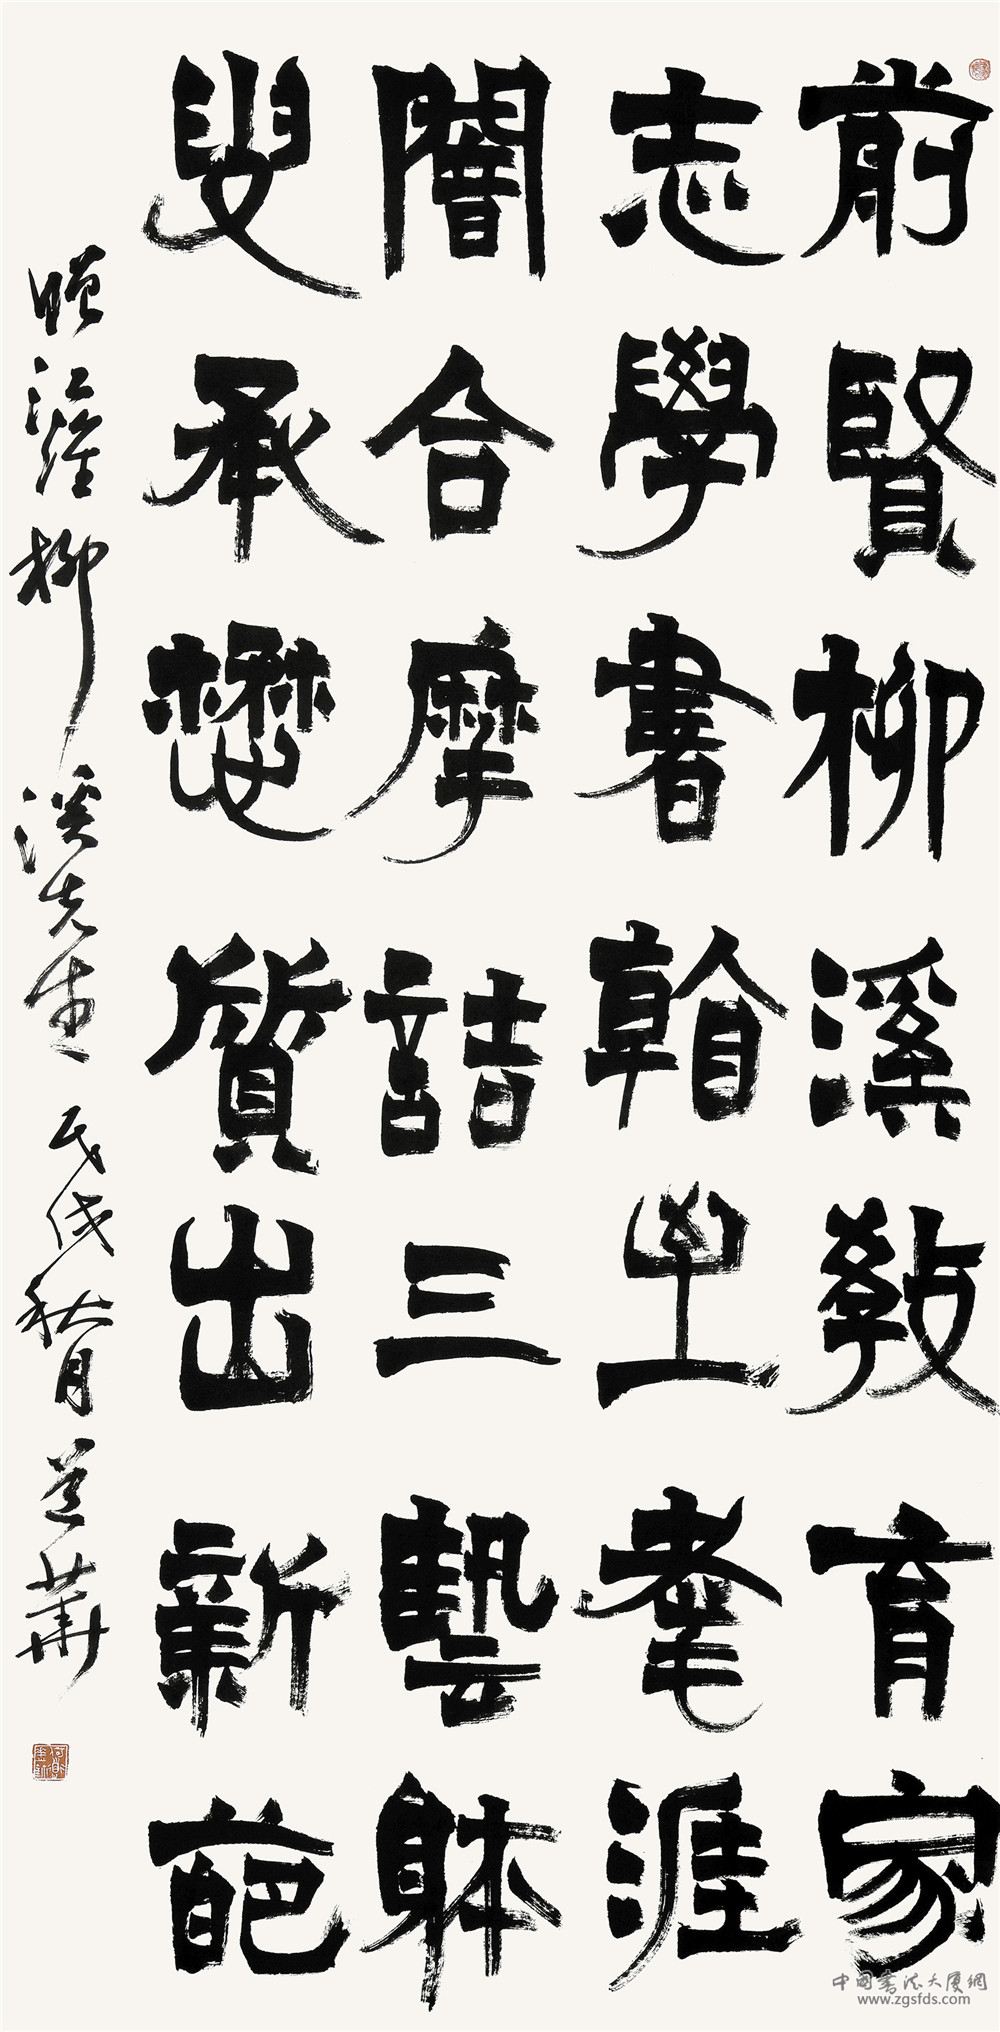 前賢柳溪教育家
志學書翰坐耄涯
闇合摩詰三藝躰
叟承懋質出新葩
瞻江淮柳溪先生 戊戌秋月 道華
中国书法大厦網
www.zgsfds.com